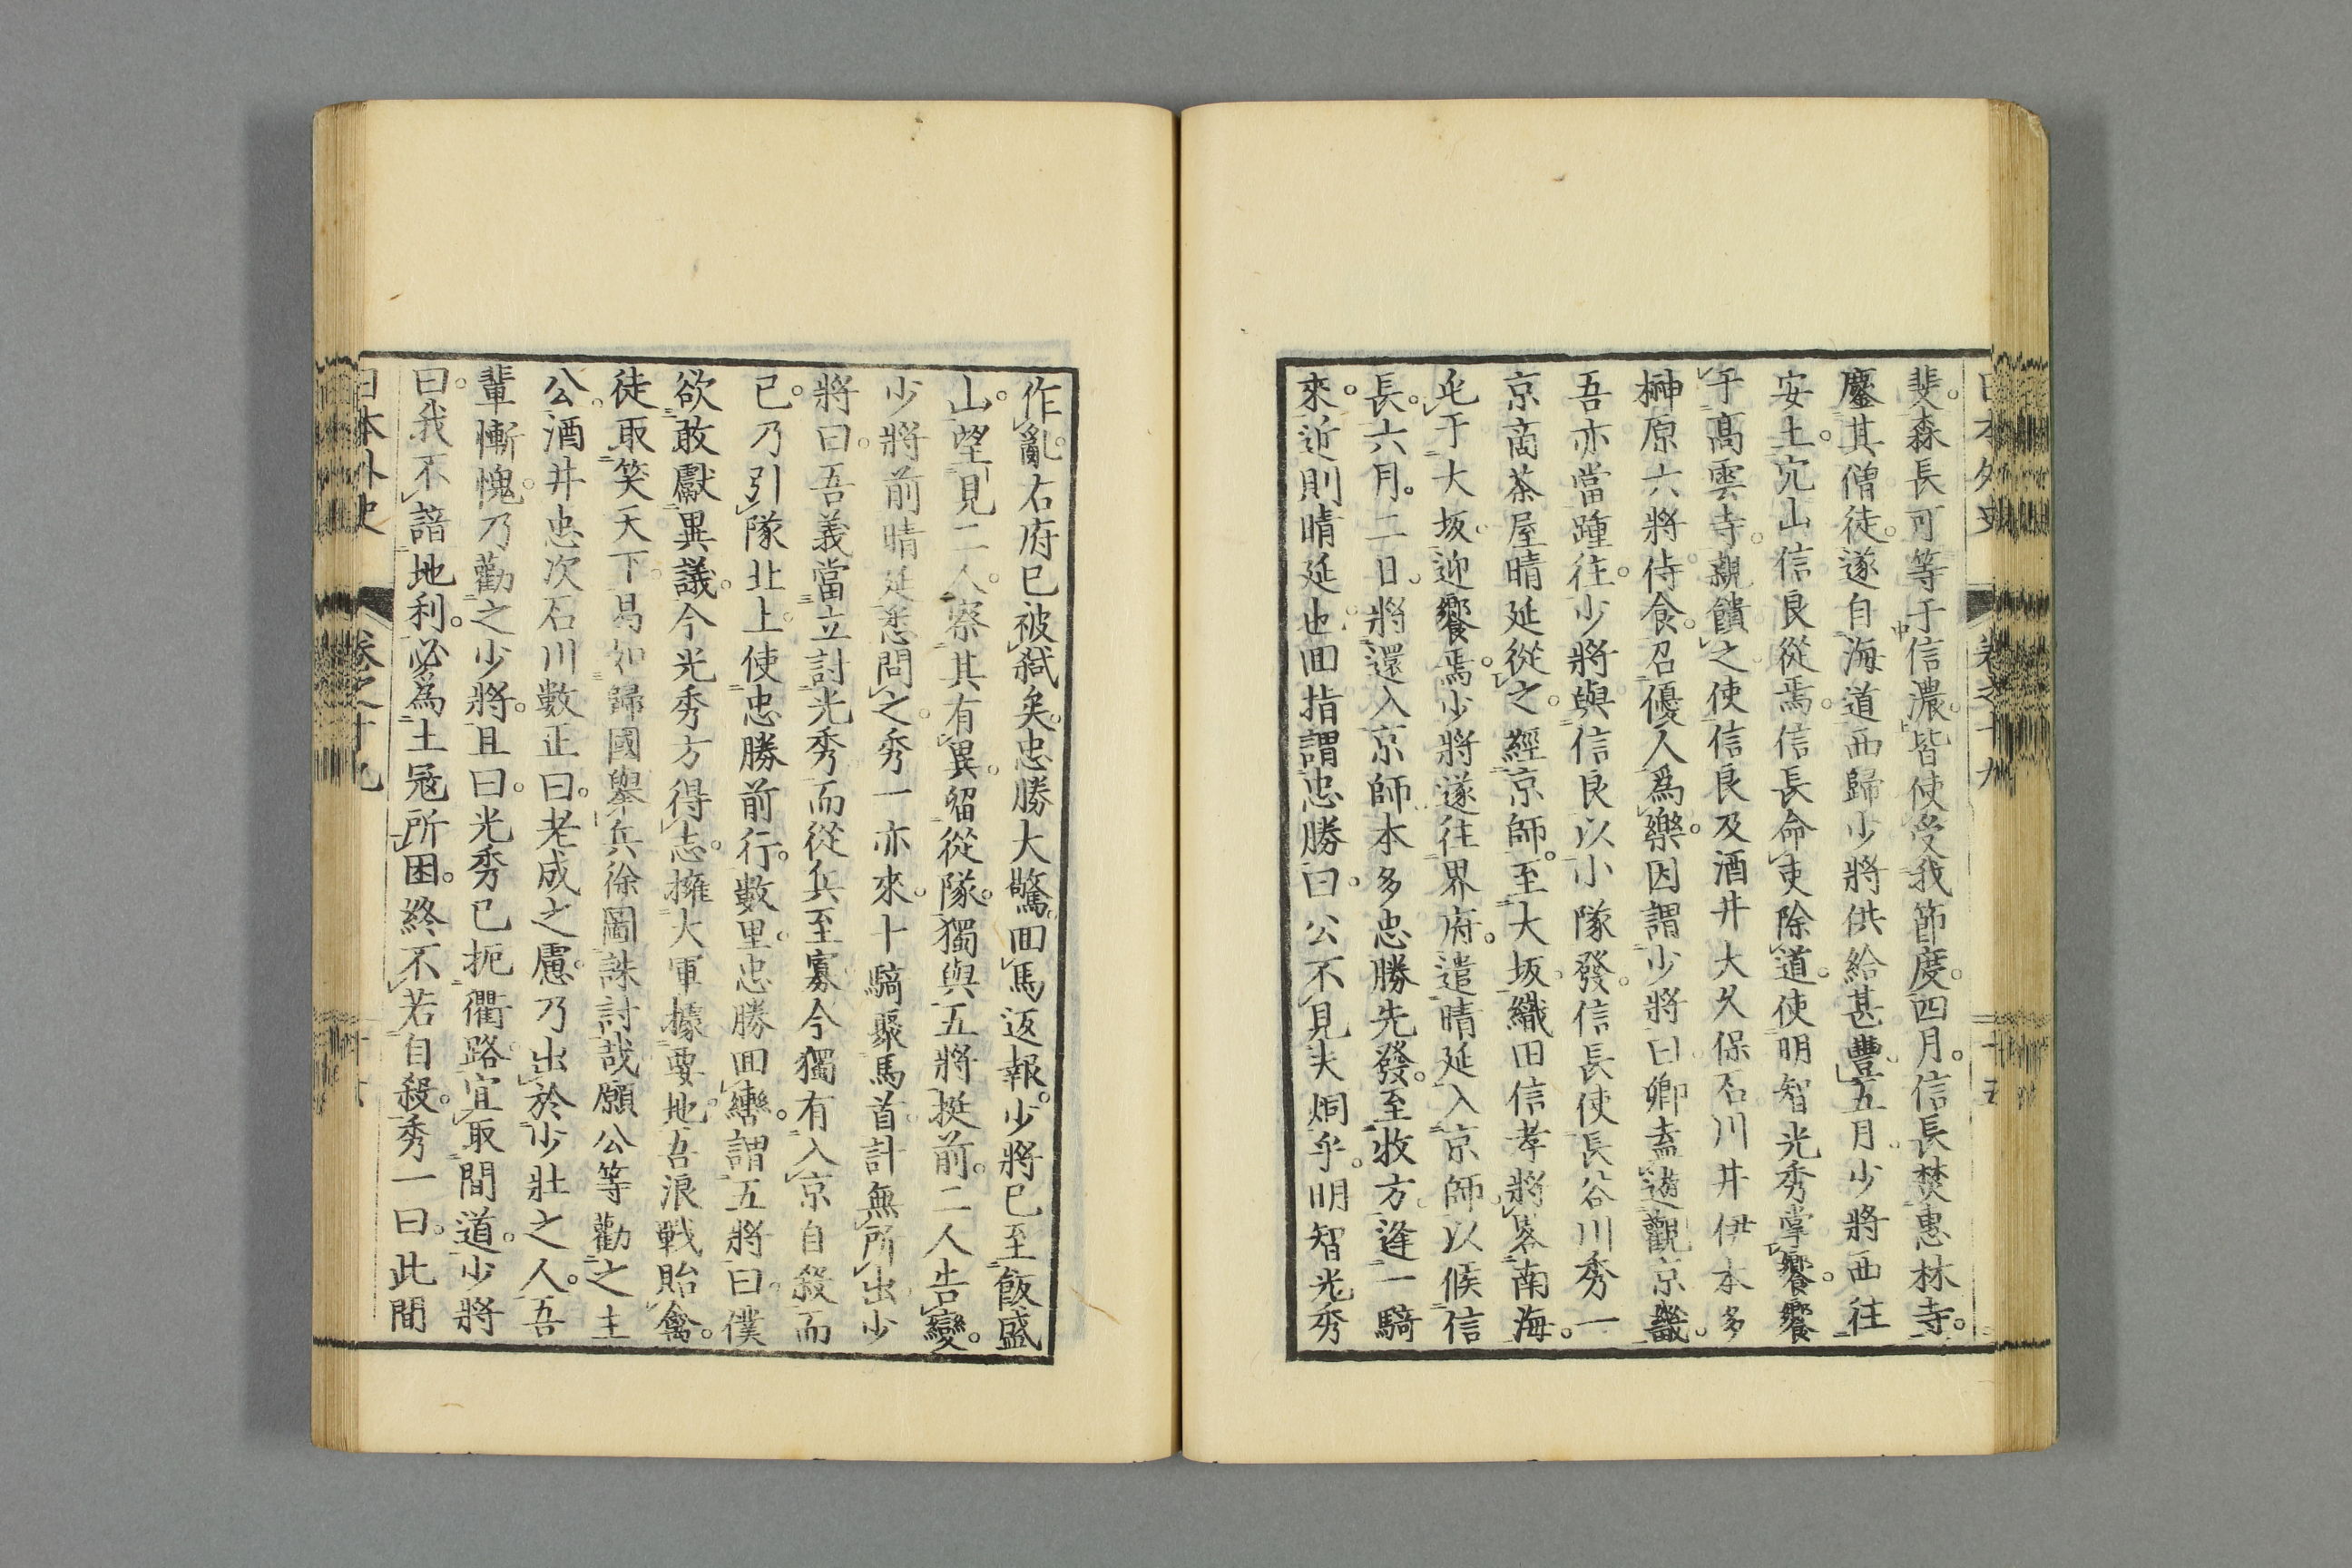 日本外史 卷之十九
斐。森長可等于信濃。皆使受我節度。四月。信長焚惠林寺。
鏖其僧徒。遂自海道西歸少將供給甚豐五月少將西往
安土。穴山信良從焉。信長命吏除道。使明智光秀掌饗。饗
于高雲寺。親饋之使信良及酒井大久保石川井伊本多
榊原六將侍食。召優人爲樂。因謂少將曰卿盍遊觀京畿。
吾亦當踵往。少將與信良以小隊發。信長使長谷川秀一
京商茶屋晴延從之。經京師。至大坂織田信孝將畧南海。
屯于大坂。迎饗焉。少將遂往界府。遣晴延入京師以候信
長。六月。二日。將還入京師本多忠勝先發。至牧方逢一騎
來。近則晴延也回指謂忠勝曰。公不見夫烟乎。明智光秀
作亂。右府已被弑矣。忠勝大驚。回馬返報。少將已至飯盛
山。望見二人。察其有異。留從隊。獨與五將挺前。二人告變。
少將前晴延悉問之。秀一亦來。十騎聚馬首計無所出少
將曰。吾義當立討光秀而從兵至寡今獨有入京自殺而
已。乃引隊北上。使忠勝前行。數里。忠勝回轡。謂五將曰。僕
欲敢獻異議。今光秀方得志。擁大軍據要地。吾浪戰貽禽。
徒取笑天下。曷如歸國擧兵徐圖誅討哉願公等勸之主
公。酒井忠次石川數正曰。老成之慮。乃出於少壯之人。吾
輩慚愧。乃勸之少將。且曰。光秀已扼衢路。宜取間道。少將
曰。我不諳地利。必為土冦所困。終不若自殺。秀一曰。此間
日本外史 卷之十九